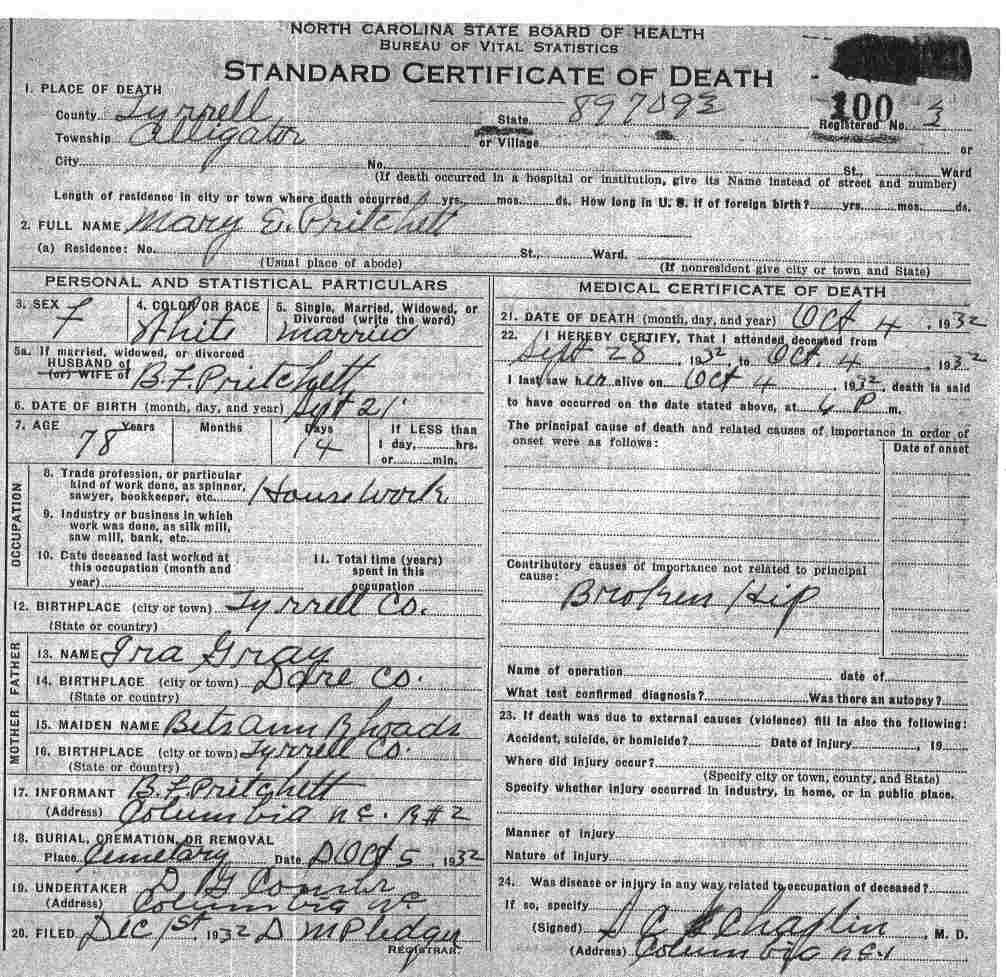 NORTH CAROLINA STATE BOARD OF HEALTH
BUREAU OF VITAL STATISTICS
STANDARD CERTIFICATE OF DEATH
1. PLACE OF DEATH
County Tyrrell State 897093 100
Registered No. 3
Township Alligator or Village or
City No. St., Ward
(If death occurred in a hospital or institution, give its Name instead of street and number)
Length of residence in city or town where death occurred yrs. mos. ds. How long in U. S. if of foreign birth? yrs. mos. ds.
2. FULL NAME Mary E. Pritchett
(a) Residence: No. St., Ward.
(Usual place of abode) (If nonresident give city or town and State)
PERSONAL AND STATISTICAL PARTICULARS
3. SEX F
4. COLOR OR RACE White
5. Single, Married, Widowed, or
Divorced (write the word)
Married
5a. If married, widowed, or divorced
HUSBAND of
(or) WIFE of B. F. Pritchett
6. DATE OF BIRTH (month, day, and year) Sept 21
7. AGE 78 Years Months Days 14 If LESS than
1 day, hrs.
or min.
OCCUPATION
8. Trade profession, or particular
kind of work done, as spinner,
sawyer, bookkeeper, etc. House work
9. Industry or business in which
work was done, as silk mill,
saw mill, bank, etc.
10. Date deceased last worked at
this occupation (month and
year)
11. Total time (years)
spent in this
occupation
12. BIRTHPLACE (city or town) Tyrrell Co.
(State or country)
FATHER
13. NAME Ira Gray
14. BIRTHPLACE (city or town) Dare Co.
(State or country)
MOTHER
15. MAIDEN NAME Bets Ann Rhoads
16. BIRTHPLACE (city or town) Tyrrell Co.
(State or country)
17. INFORMANT B. F. Pritchett
(Address) Columbia N.C. R#2
18. BURIAL, CREMATION, OR REMOVAL
Place Cemetary Date Oct 5, 1932
19. UNDERTAKER D G
(Address) Columbia NC
20. FILED Dec 1st 1932 D M Pledger
REGISTRAR.
MEDICAL CERTIFICATE OF DEATH
21. DATE OF DEATH (month, day, and year) Oct 4, 1932
22. I HEREBY CERTIFY, That I attended deceased from
Sept 28, 1932, to Oct. 4, 1932
I last saw her alive on Oct 4, 1932, death is said
to have occurred on the date stated above, at 6 P m.
The principal cause of death and related causes of importance in order of
onset were as follows:
Date of onset
Contributory causes of importance not related to principal
cause:
Broken Hip
Name of operation date of
What test confirmed diagnosis? Was there an autopsy?
23. If death was due to external causes (violence) fill in also the following:
Accident, suicide, or homicide? Date of injury, 19
Where did injury occur?
(Specify city or town, county, and State)
Specify whether injury occurred in industry, in home, or in public place.
Manner of injury
Nature of injury
24. Was disease or injury in any way related to occupation of deceased?
If so, specify
(Signed) Chaplin, M. D.
(Address) Columbia N.C.